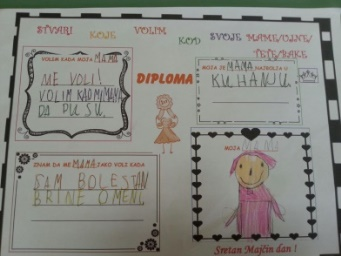 STVARI KOJE VOLIM KOD SVOJE MAME/UJNE/
TETE/BAKE
VOLIM KADA MOJA MAMA
ME VOLI!
VOLIM KAD MI MAMA
DA PUSU.
DIPLOMA
MOJA JE MAMA NAJBOLJA U
KUHANJU.
ZNAM DA ME MAMA JAKO VOLI KADA
SAM BOLESTAN
BRINE O MENI.
MOJA MAMA
Sretan Majčin dan !